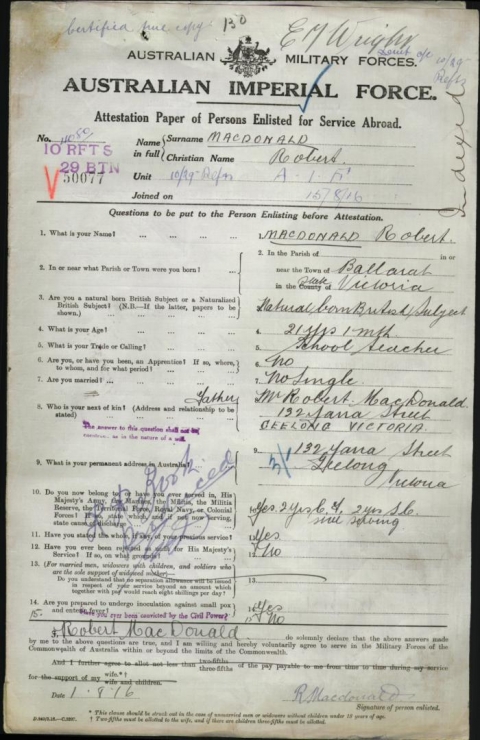 Certified true copy 130
E J Wright
Lieut o/c 10/29 Refts
AUSTRALIAN MILITARY FORCES.
AUSTRALIAN IMPERIAL FORCE.
Attestation Paper of Persons Enlisted for Service Abroad.
Indexed
No.
10 RFTS
29 BTN
V 50077
Name in full
Surname MACDONALD
Christian Name Robert.
Unit 10/29 Refts A.I.F.
Joined on 15/8/16
Questions to be put to the Person Enlisting before Attestation.
1. What is your Name? ... ... MACDONALD Robert.
2. In or near what Parish or Town were you born? ... 2. In the Parish of in or
near the Town of Ballarat
in the County of State Victoria
3. Are you a natural born British Subject or a Naturalized
British Subject? (N.B.—If the latter, papers to be
shown.) Natural born British Subject
4. What is your Age? 4. 21 yrs 1 mth
5. What is your Trade or Calling? 5. School teacher
6. Are you, or have you been, an Apprentice? If so, where,
to whom, and for what period? 6. No
7. Are you married? 7. No Single
8. Who is your next of kin? (Address and relationship to be
stated) Father 8. Mr Robert MacDonald
132 Yarra Street
GEELONG VICTORIA.
The answer to this question shall not be
construed as in the nature of a will.
9. What is your permanent address in Australia? 9. 132 Yarra Street
Geelong
Victoria
10. Do you now belong to, or have you ever served in, His
Majesty's Army, the Marines, the Militia, the Militia
Reserve, the Territorial Force, Royal Navy, or Colonial
Forces? If so, state which, and if not now serving,
state cause of discharge 10. Yes. 2 yrs C. 2 yrs S.C.
still serving
11. Have you stated the whole, if any, of your previous service? 11. Yes
12. Have you ever been rejected as unfit for His Majesty's
Service? If so, on what grounds? 12. No
13. (For married men, widowers with children, and soldiers
who are the sole support of widowed mother)—
Do you understand that no separation allowance will be issued
in respect of your service beyond an amount which
together with pay would reach eight shillings per day? 13.
14. Are you prepared to undergo inoculation against small pox
and enteric fever? 14. Yes
15. Have you ever been convicted by the Civil Power? 15. No
I, Robert MacDonald do solemnly declare that the above answers made
by me to the above questions are true, and I am willing and hereby voluntarily agree to serve in the Military Forces of the
Commonwealth of Australia within or beyond the limits of the Commonwealth.
And I further agree to allot not less than two-fifths three-fifths of the pay payable to me from time to time during my service
for the support of my wife.*†
wife and children.
Date 1.8.16 R. Macdonald
Signature of person enlisted.
* This clause should be struck out in the case of unmarried men or widowers without children under 18 years of age.
† Two-fifths must be allotted to the wife, and if there are children three-fifths must be allotted.